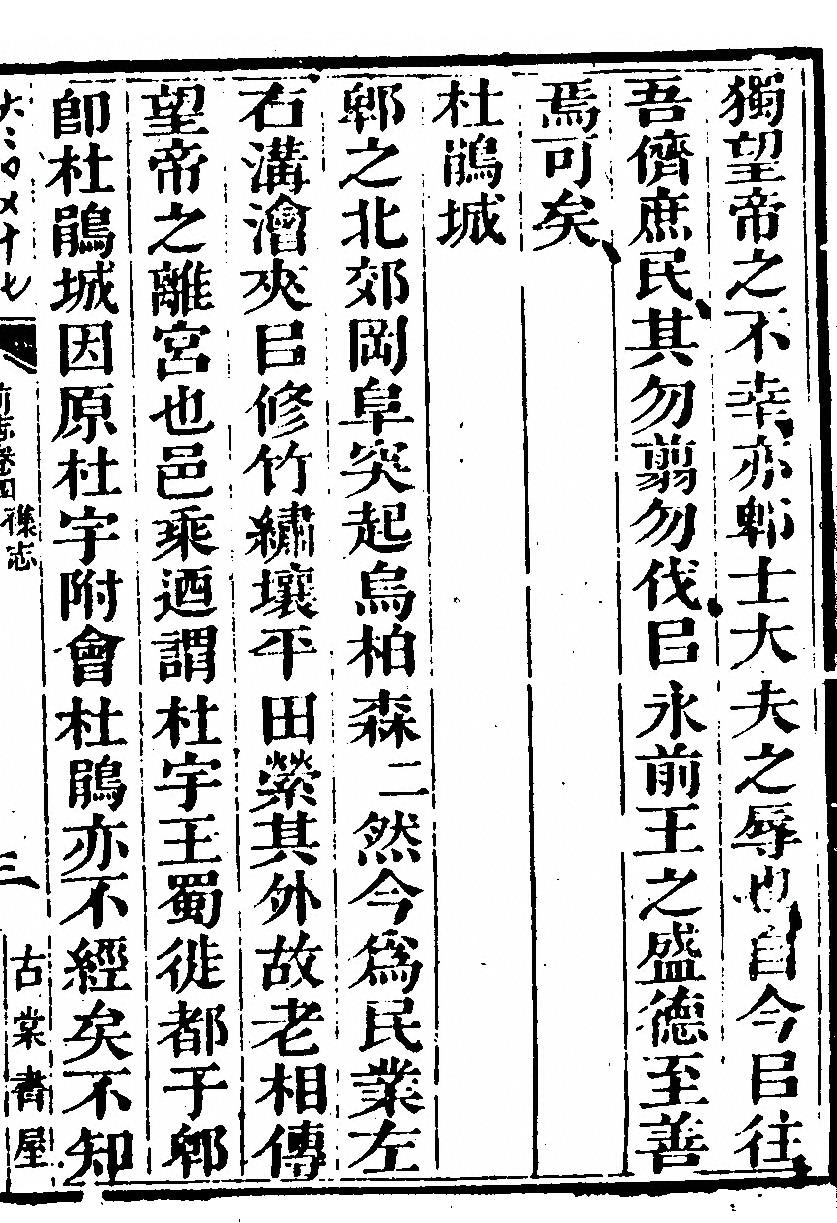 獨望帝之不幸亦郫士大夫之辱也自今㠯往
吾儕庶民其勿翦勿伐㠯永前王之盛德至善
焉可矣
杜鵑城
郫之北郊岡阜突起烏桕森二然今爲民業左
右溝澮夾㠯修竹繡壤平田縈其外故老相傳
望帝之離宮也邑乘迺謂杜宇王蜀徙都于郫
卽杜鵑城因原杜宇附會杜鵑亦不經矣不知
前志卷四 襍志
三
古棠書屋